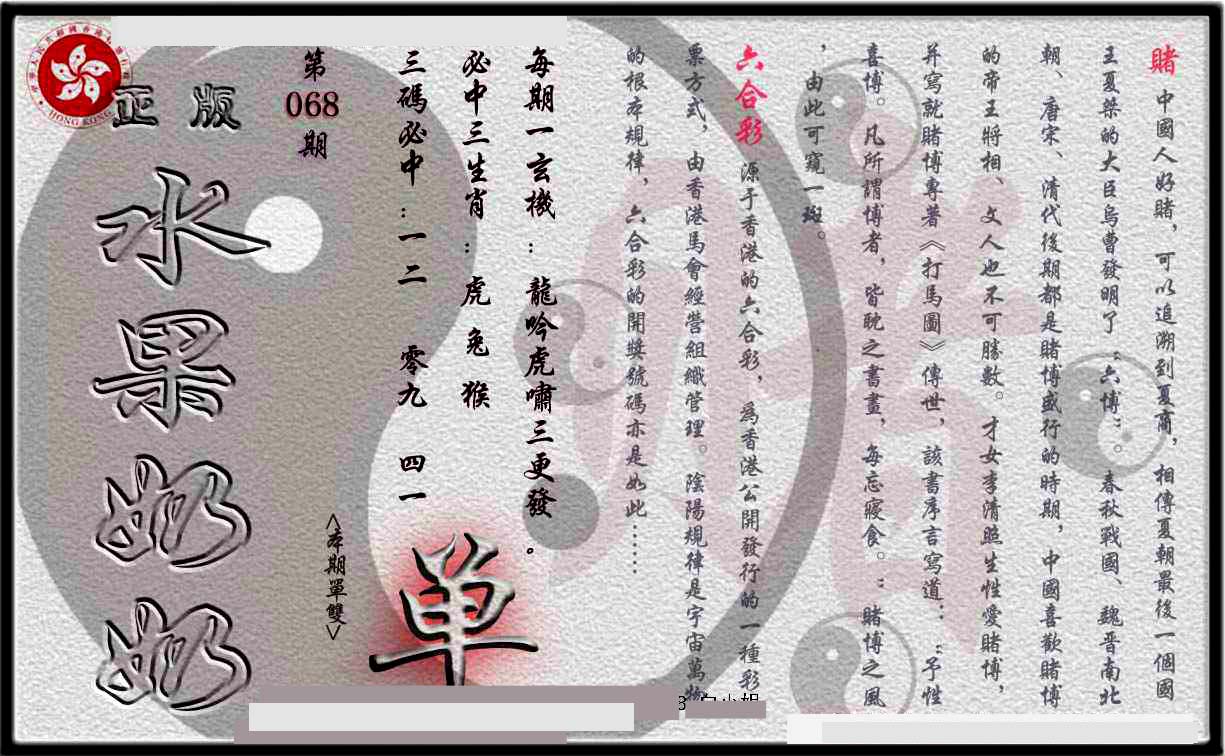 賭 中國人好賭，可以追溯到夏商，相傳夏朝最後一個國
王夏桀的大臣烏曹發明了“六博”。春秋戰國、魏晋南北
朝、唐宋、清代後期都是賭博盛行的時期，中國喜歡賭博
的帝王將相、文人也不可勝數。才女李清照生性愛賭博，
并寫就賭博專著《打馬圖》傳世，該書序言寫道：“予性
喜博。凡所謂博者，皆耽之書畫，每忘寢食。”賭博之風
，由此可窺一斑。
六合彩 源于香港的六合彩，爲香港公開發行的一種彩
票方式，由香港馬會經營組織管理。陰陽規律是宇宙萬物
的根本規律，六合彩的開獎號碼亦是如此……
每期一玄機：龍吟虎嘯三更發。
必中三生肖：虎 兔 猴
三碼必中：一二 零九 四一
<本期單雙>
单
第
068
期
正版
水果奶奶
HONG KONG